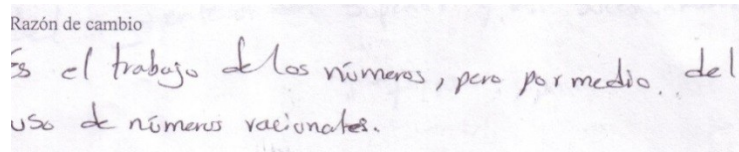 Razón de cambio
Es el trabajo de los números, pero por medio. del
uso de números racionales.